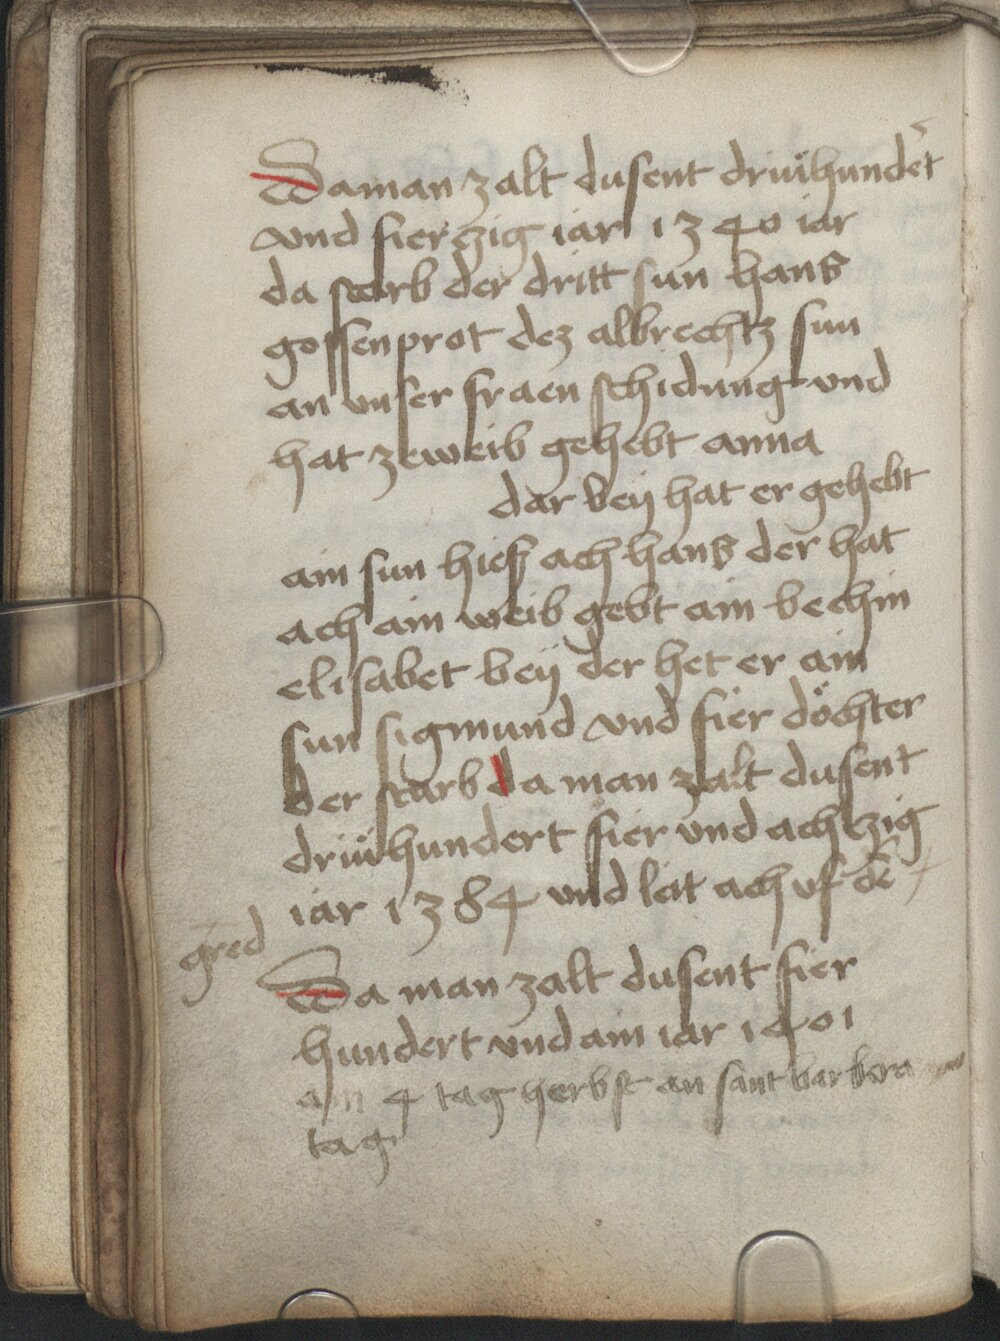 Da man zalt dusent driühundert
vnd fierzig iar 1340 iar
da starb der dritt sun hans
gossenprot dez albrechtz sun
an vnser fraen schidung vnd
hat zeweib gehebt anna
dar beÿ hat er gehebt
ain sun hiess ach hans der hat
ach ain weib gebt ain bechin
elisabet beÿ der het er ain
sun sigmund vnd fier döchter
der starb da man zalt dusent
driühundert fier vnd achtzig
iar 1384 vnd leit ach vf de
gred
Da man zalt dusent fier
hundert vnd ain iar 1401
am 4 tag herbst an sant barbera
tag